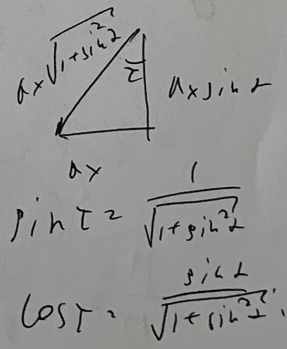 ax√(1+sin²α)
τ
ax sin α
ax
sin τ = 1/√(1+sin²α)
cos τ = sin α/√(1+sin²α).